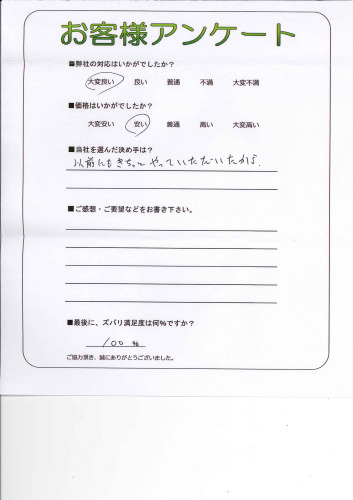 お客様アンケート
■弊社の対応はいかがでしたか？
大変良い 良い 普通 不満 大変不満
■価格はいかがでしたか？
大変安い 安い 普通 高い 大変高い
■当社を選んだ決め手は？
以前にもきちっとやっていただいたから.
■ご感想・ご要望などをお書き下さい。
■最後に、ズバリ満足度は何％ですか？
100 %
ご協力頂き、誠にありがとうございました。